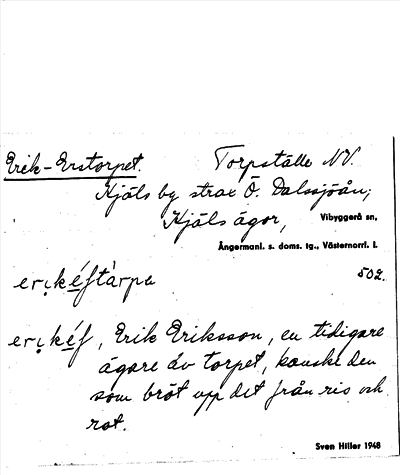 Erik-Erstorpet. Torpställe NV.
Kjäls by strax Ö. Dalssjöån,
Kjäls ägor, Vibyggerå sn,
Ångermanl. s. doms. tg., Västernorrl. l.
502.
erıkéftårpa
erıkéf, Erik Eriksson, en tidigare
ägare av torpet, kanske den
som bröt upp det från ris och
rot.
Sven Hiller 1948